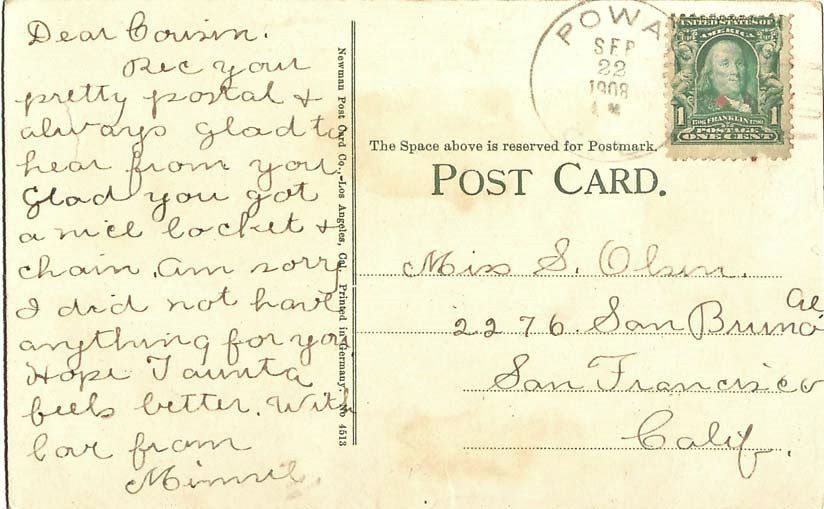 Dear Cousin.
Rec your
pretty postal &
always glad to
hear from you.
Glad you got
a nice locket &
chain. am sorry
I did not have
anything for you
Hope Taunta
feels better. With
love from
Minnie.
Newman Post Card Co., Los Angeles, Cal. Printed in Germany. No 4513
POWA
SEP
22
1908
M
UNITED STATES OF
AMERICA
1 FRANKLIN 1
POSTAGE
ONE CENT
The Space above is reserved for Postmark.
POST CARD.
Miss S. Olsen.
2276. San Bruno
San Francisco
Calif.